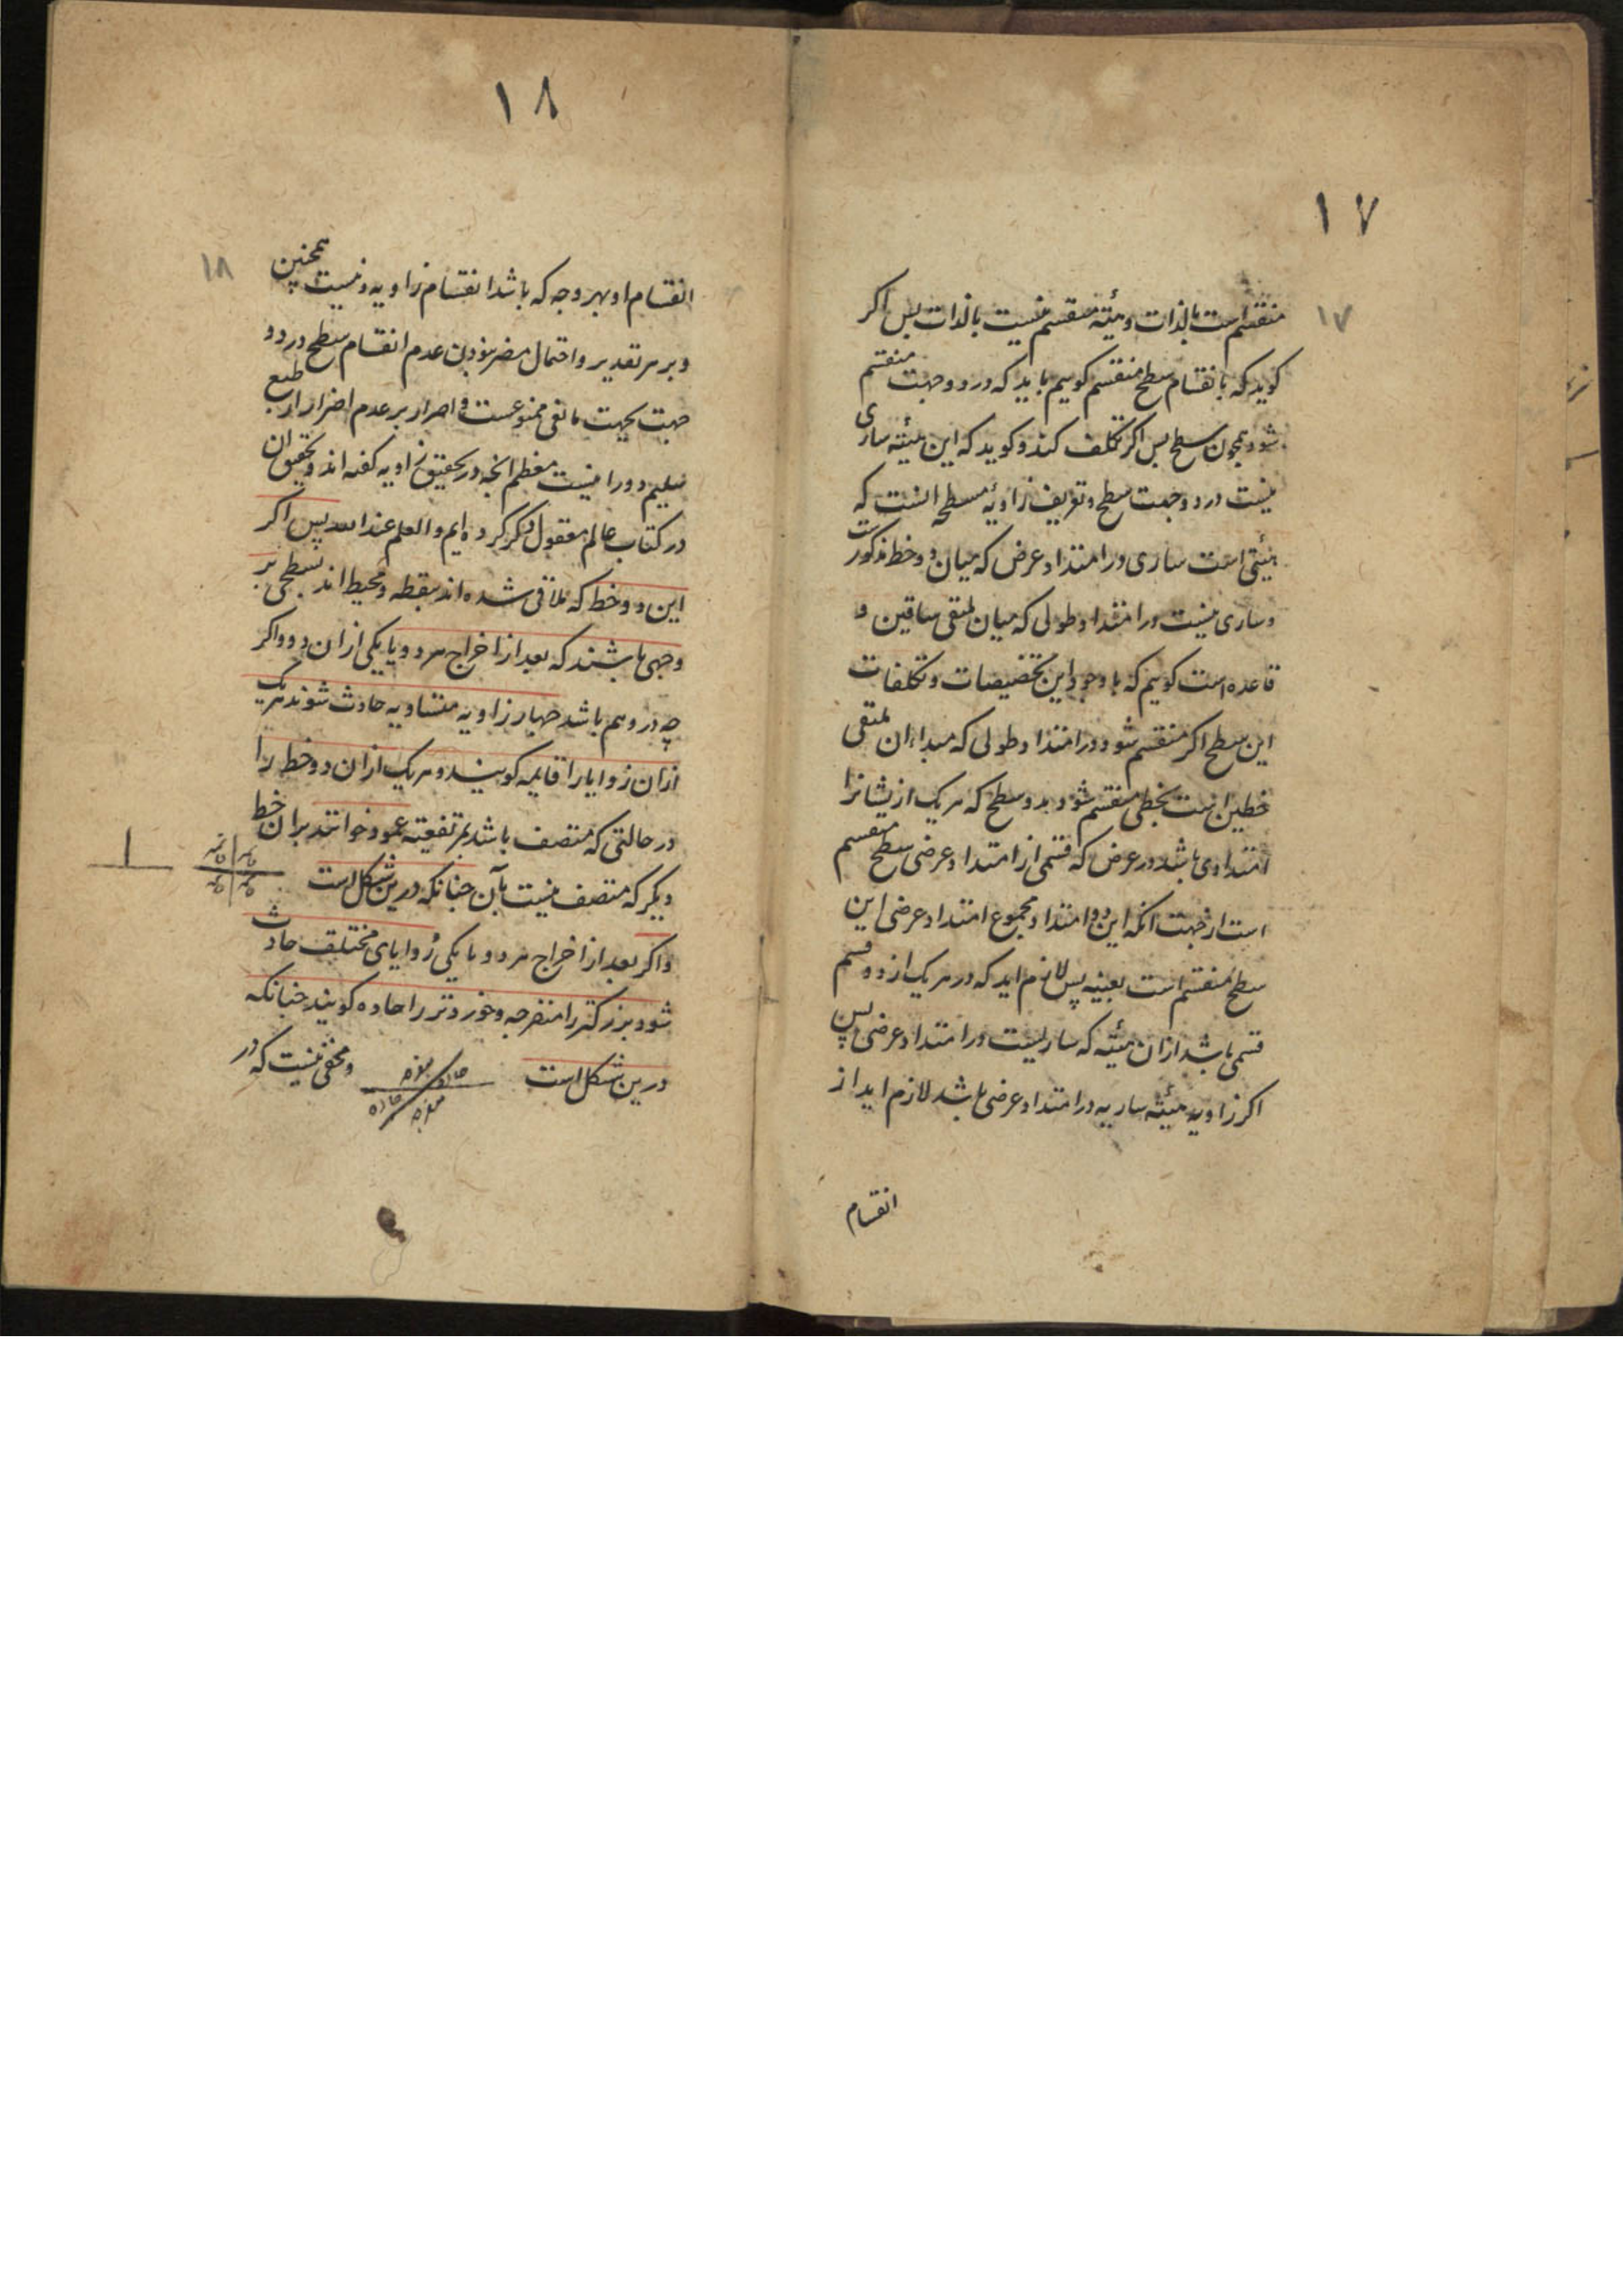 ۱۷
۱۷
منقسم است بالذات و هیئته منقسم نیست بالذات پس اکر
کوید که بانقسام سطح منقسم کوییم باید که در دو جهت منقسم
شود همچون سطح پس اکر تکلف کند و کوید که این هیئته ساری
نیست در دو جهت سطح و تعریف زاویهٔ مسطحه انست که
هیئتی است ساری در امتداد عرض که میان دو خط مذکورست
و ساری نیست در امتداد طولی که میان ملتقی ساقین و
قاعده است کوییم که با وجود این تخصیصات و تکلفات
این سطح اکر منقسم شود در امتداد طولی که مبداء ان ملتقی
خطین است بخطی منقسم شود بدو سطح که هر یک از یشانرا
امتدادی باشد در عرض که قسمی از امتداد عرضی سطح منقسم
است از جهت انکه این دو امتداد مجموع امتداد عرضی این
سطح منقسم است بعینه پس لازم اید که در هر یک از دو قسم
قسمی باشد ازان هیئته که ساریست در امتداد عرضی پس
اکر زاویه هیئته ساریه در امتداد عرضی باشد لازم اید از
انقسام
۱۸
۱۸
انقسام او بهر وجه که باشد انقسام زاویه و نیست همچنین
و بر هر تقدیر و احتمال مضر بودن عدم انقسام سطح در دو
جهت بجهت مانعی ممنوعست و اصرار بر عدم اضرار از طبع
سلیم دور نیست معظم انچه در تحقیق زاویه کفته اند و تحقیق ان
در کتاب عالم معقول ذکر کرده ایم و العلم عند الله پس اکر
این دو خط که ملاقی شده اند بنقطه و محیط اند بسطحی بر
وجهی باشند که بعد از اخراج هر دو یا یکی ازان دو و اکر
چه در وهم باشد چهار زاویه متساویه حادث شوند هر یک
ازان زوایا را قایمه کویند و هر یک ازان دو خط را
در حالتی که متصف باشد بمرتفعیته عمود خوانند بران خط
دیکر که متصف نیست بآن چنانکه درین شکل است
قایمه قایمه
قایمه قایمه
و اکر بعد از اخراج هر دو یا یکی زوایای مختلف حادث
شود بزرکتر را منفرجه و خوردتر را حاده کویند چنانکه
درین شکل است
حاده منفرجه
منفرجه حاده
و مخفی نیست که در